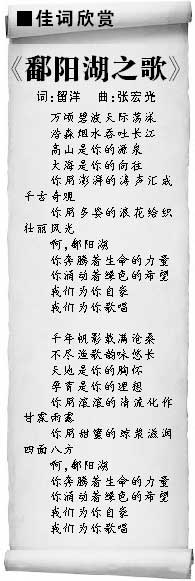 ■佳词欣赏
《鄱阳湖之歌》
词:留洋 曲:张宏光
万顷碧波天际荡漾
浩淼烟水吞吐长江
高山是你的源泉
大海是你的向往
你用澎湃的涛声汇成
千古奇观
你用多姿的浪花绘织
壮丽风光
啊,鄱阳湖
你奔腾着生命的力量
你涌动着绿色的希望
我们为你自豪
我们为你歌唱
千年帆影载满沧桑
不尽渔歌韵味悠长
天地是你的胸怀
孕育是你的理想
你用滚滚的清流化作
甘霖雨露
你用甜蜜的琼浆滋润
四面八方
啊,鄱阳湖
你奔腾着生命的力量
你涌动着绿色的希望
我们为你自豪
我们为你歌唱